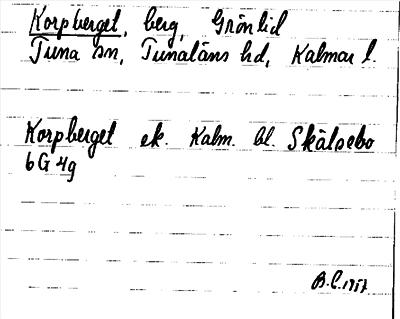 Korpberget, berg, Grönlid
Tuna sn, Tunaläns hd, Kalmar l.
Korpberget ek. Kalm. bl. Skälsebo
6G 4g
B.L. 1957